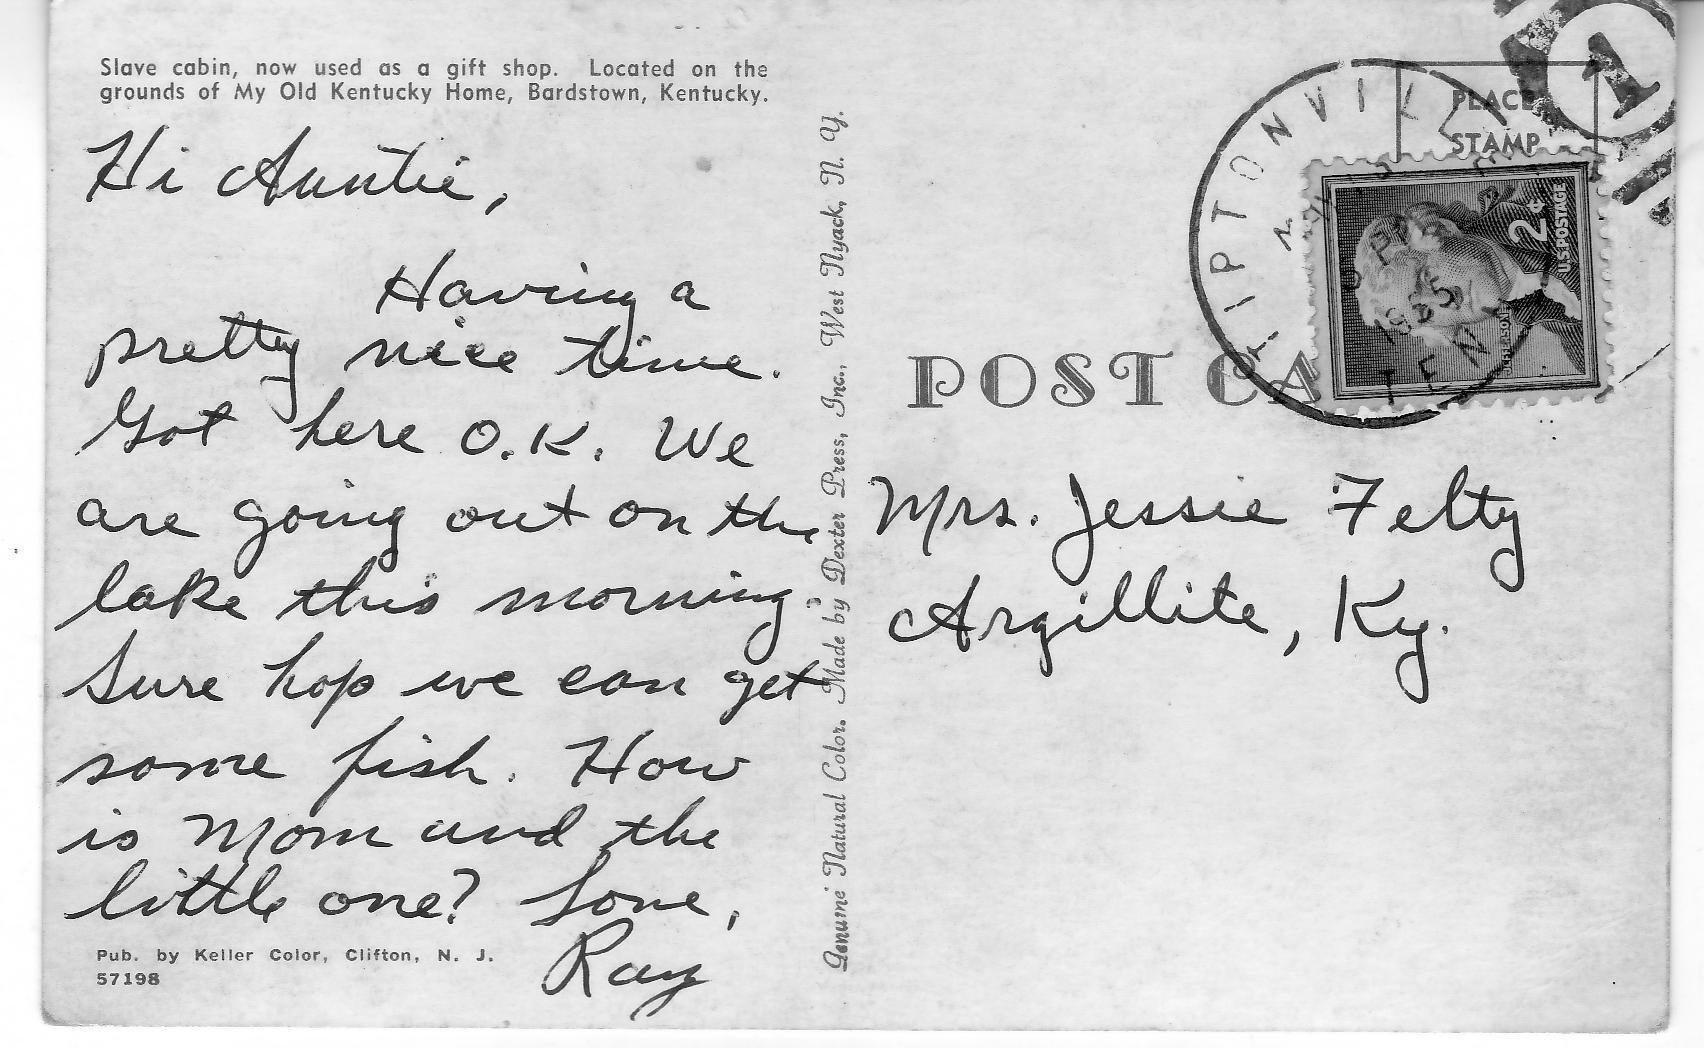 Slave cabin, now used as a gift shop. Located on the
grounds of My Old Kentucky Home, Bardstown, Kentucky.
Hi Auntie,
Having a
pretty nice time.
Got here O.K. We
are going out on the
lake this morning
Sure hop we can get
some fish. How
is Mom and the
little one? Love,
Ray
Pub. by Keller Color, Clifton, N. J.
57198
Genuine Natural Color. Made by Dexter Press, Inc., West Nyack, N. Y.
PLACE
STAMP
1
TIPTONVILL
1965
TENN
2¢
U.S. POSTAGE
JEFFERSON
POST CA
Mrs. Jessie Felty
Argillite, Ky.